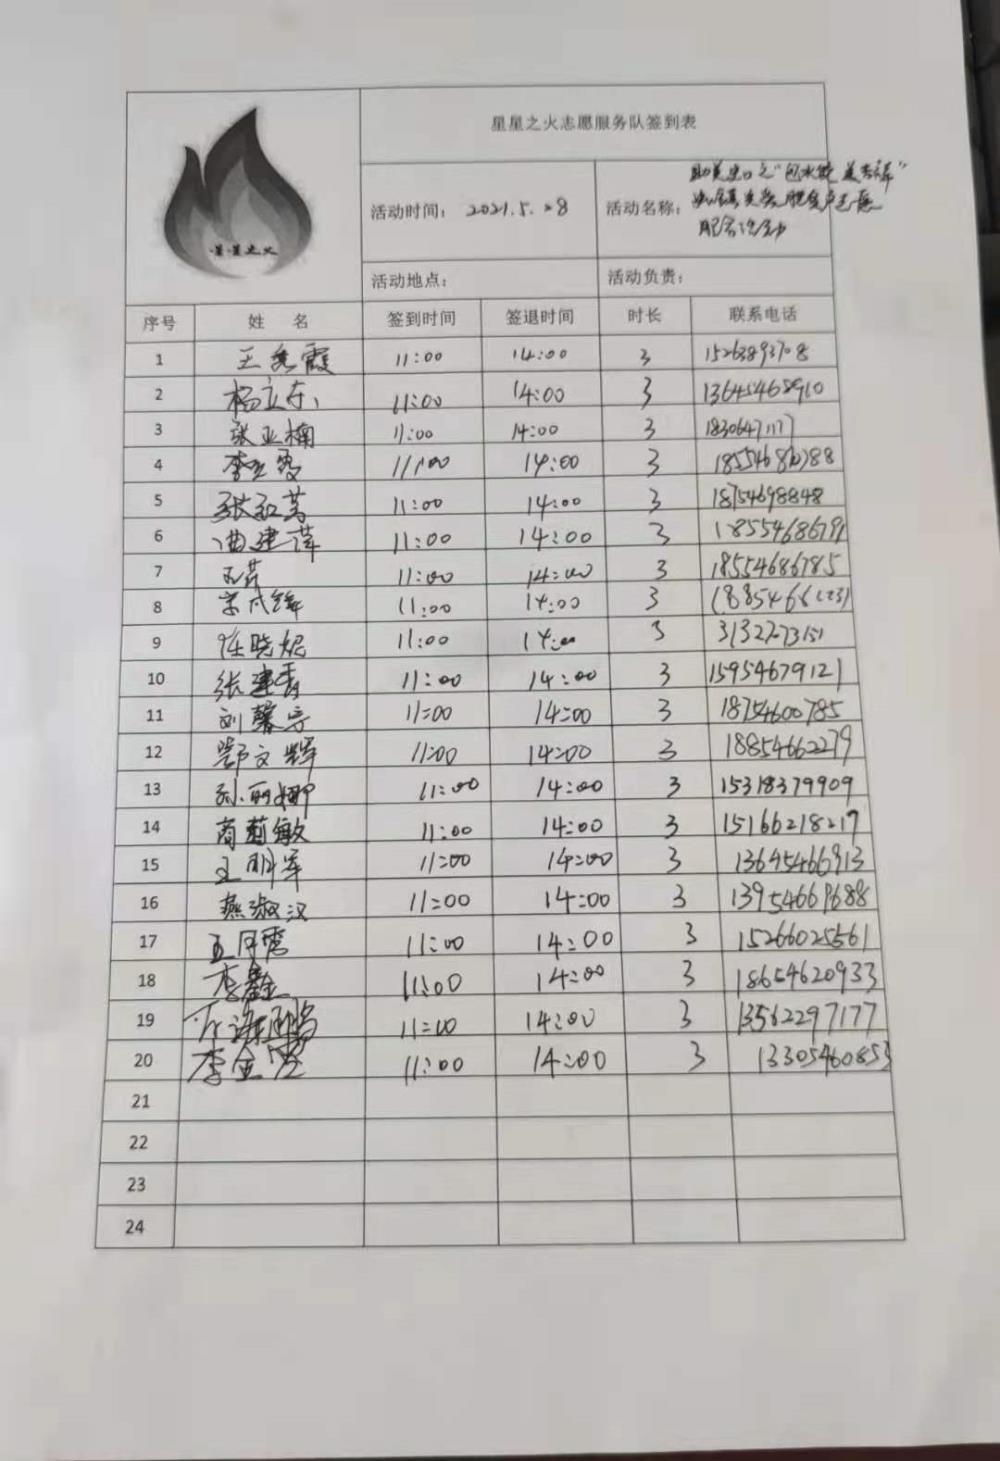 星星之火志愿服务队签到表
活动时间： 2021.5.28
活动名称：
·星·星之火
活动地点：
活动负责：
序号 姓 名 签到时间 签退时间 时长 联系电话
1 王 霞 11:00 14:00 3
2 杨立东 11:00 14:00 3 13645468910
3 张亚楠 11:00 14:00 3
4 李 霞 11:00 14:00 3
5 张红芳 11:00 14:00 3 18754698848
6 曲建萍 11:00 14:00 3 18554686791
7 11:00 14:00 3 18554686785
8 11:00 14:00 3
9 任晓妮 11:00 14:00 3
10 张建香 11:00 14:00 3 15954679121
11 刘馨宇 11:00 14:00 3 18754600785
12 鄂文辉 11:00 14:00 3 18854662279
13 孙丽娜 11:00 14:00 3 15318379909
14 商菊敏 11:00 14:00 3 15166218217
15 王明军 11:00 14:00 3 13645466913
16 燕淑汉 11:00 14:00 3 13954669688
17 王月霞 11:00 14:00 3 15266025561
18 李鑫 11:00 14:00 3 18654620933
19 11:00 14:00 3 13562297177
20 李金 11:00 14:00 3 13305460853
21
22
23
24